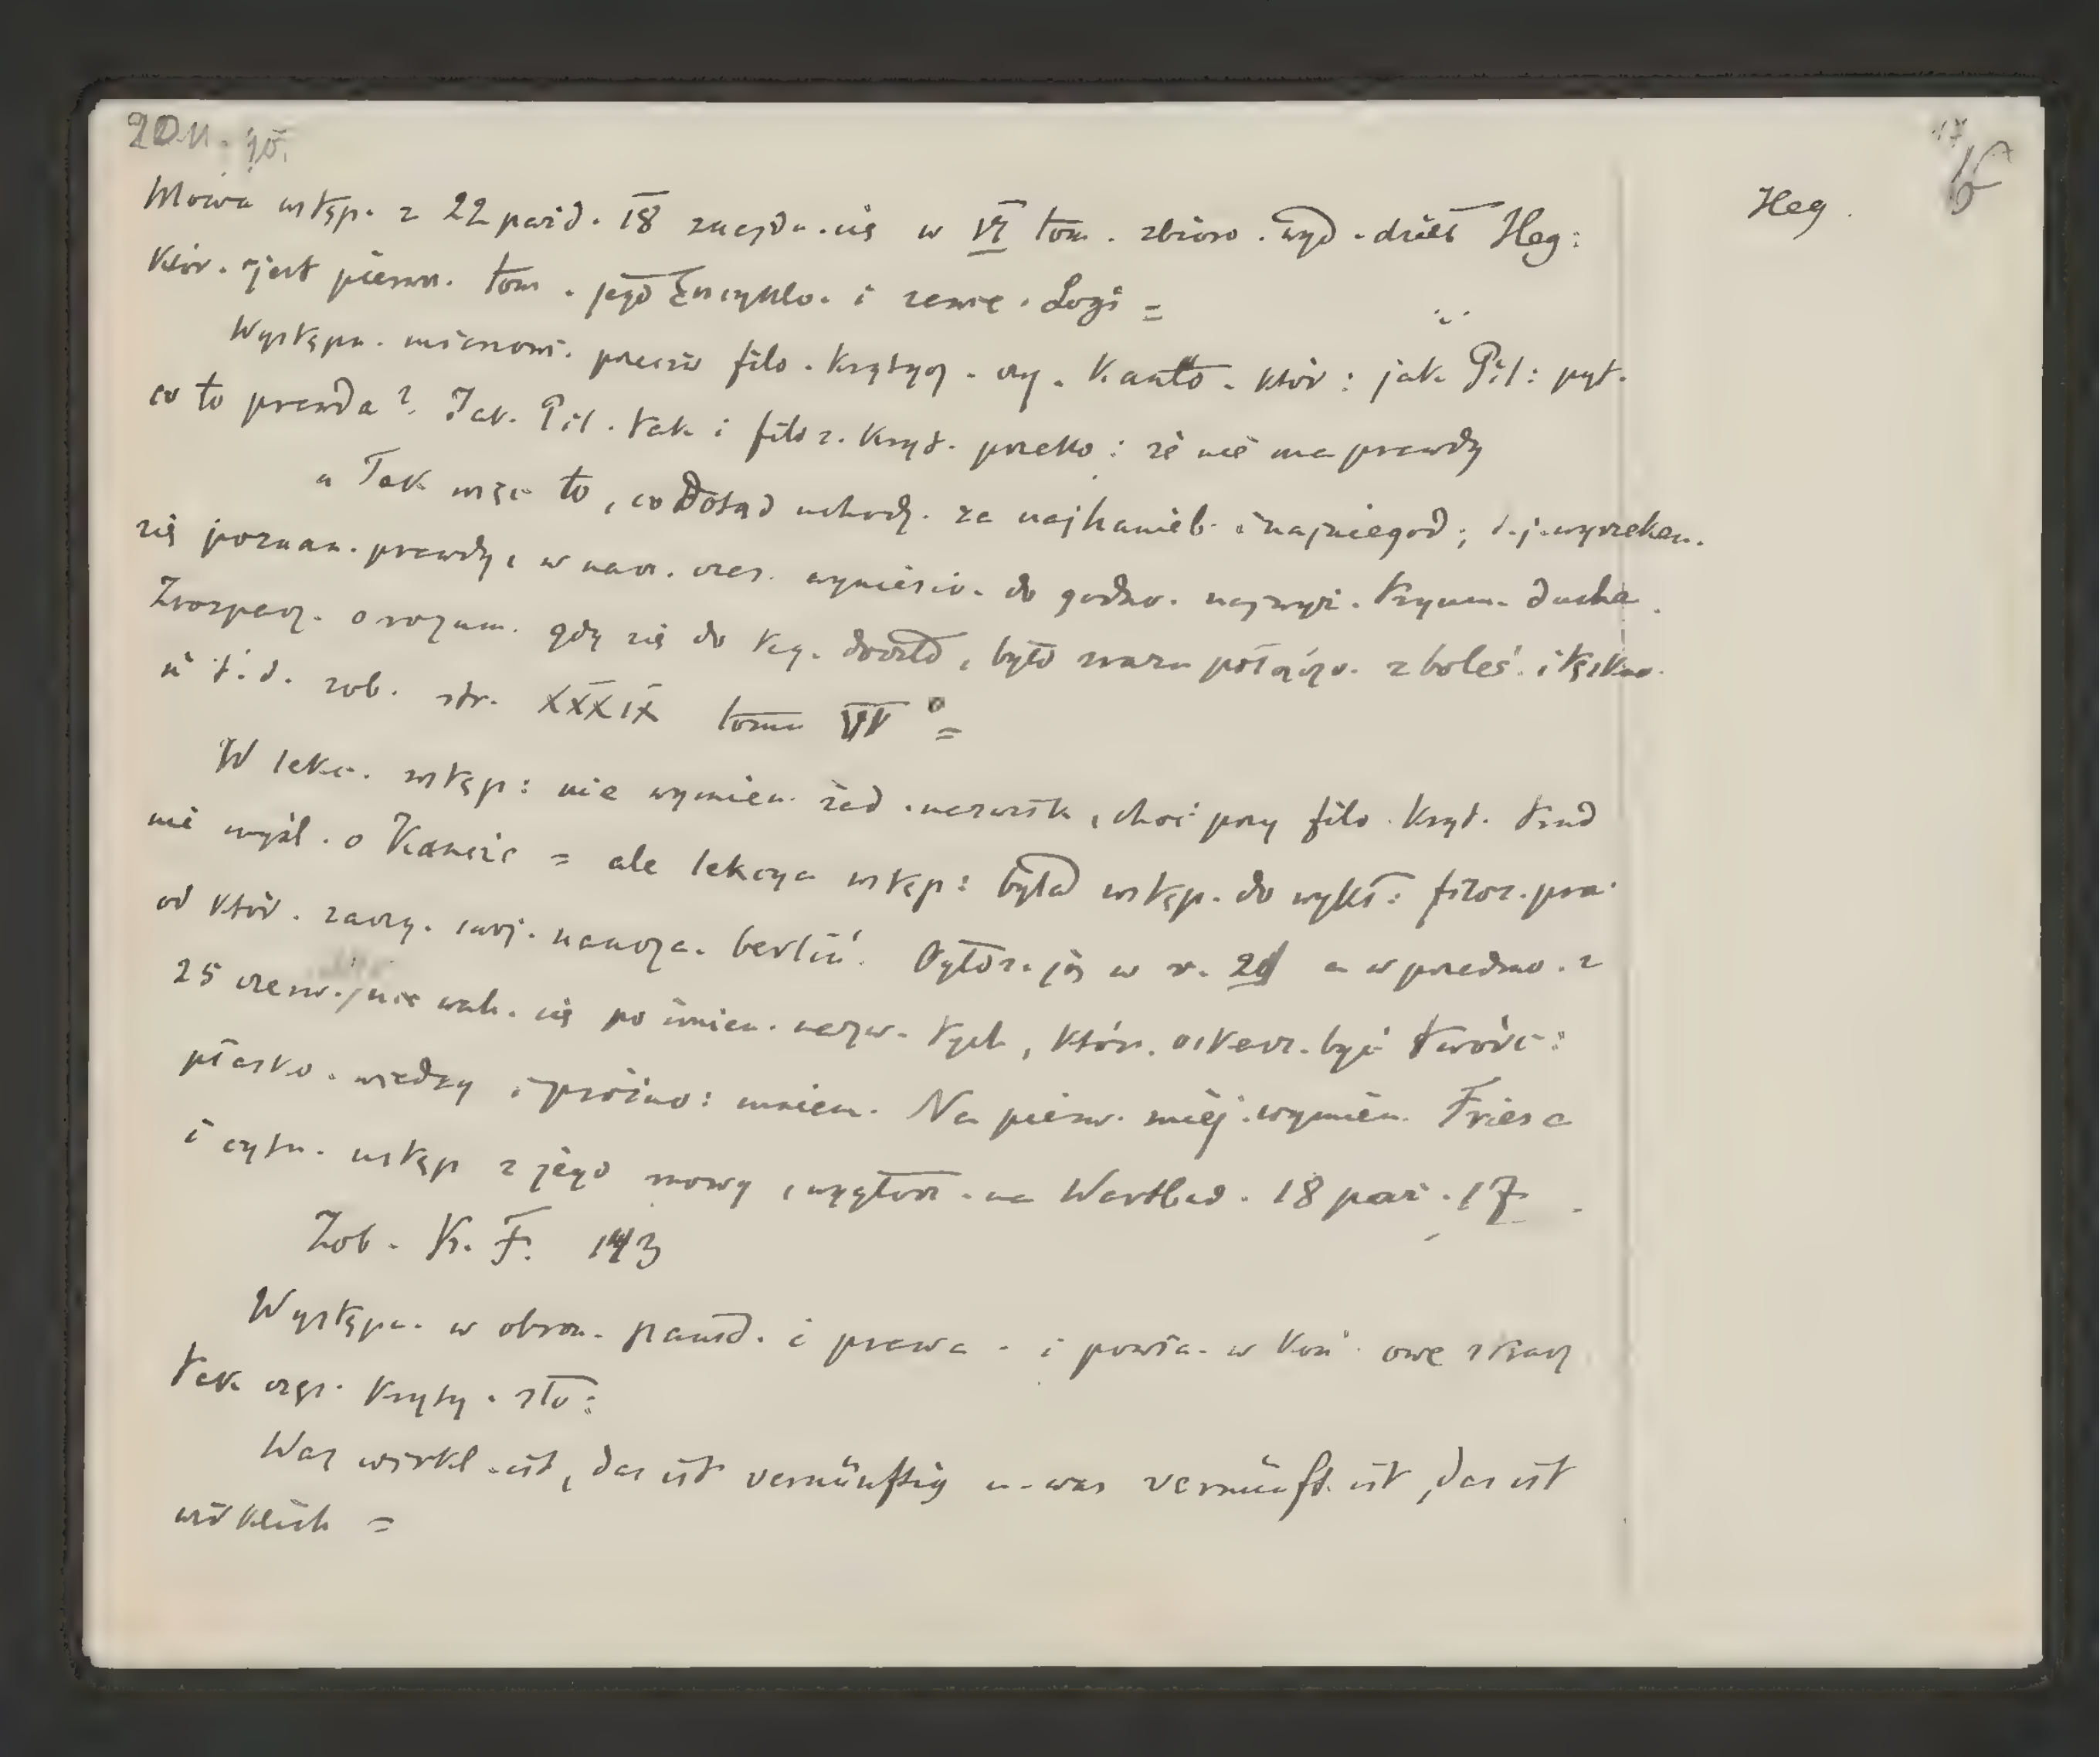 Heg.
Mowa wstęp. z 22 paźd. 18 znajdu. się w VI tom. zbioro. wyd. dzieł Heg:
któr. jest pierw. tom. jego Encyklo. i zawie. Logi =
Występu. mianowi. przeciw filo. krytycz. czy. Kanto. któr: jak Pił: pyt.
co to prawda? Jak. Pił. tak i filoz. kryt. przeko: że nie ma prawdy
„ Tak więc to, co dotąd uchodz. za najhanieb. i najniegod; t.j. wyrzeken.
się poznan. prawdy, w nasz. czas. wyniesio. do godno. najwyż. tryum. ducha.
Zrozpacz. o rozum. gdy się do teg. doszło, było zrazu połączo. z boleś. i tęskno.
i t. d. zob. str. XXXIX tomu VI =
W lekc. wstęp: nie wymien. żad. nazwisk, choć przy filo. kryt. trud
nie myśl. o Kancie = ale lekcya wstęp: była wstęp. do wykł: filoz. pra.
od któr. zaczy. swoj. naucza. berliń. Ogłos. ją w r. 20 a w przedmo. z
25 czerw. nie wah. się po imien. nazw. tych, któr. oskarż. być twórc:
płasko. wiedzy i próżno: mniem. Na pierw. miej. wymien. Friesa
i cytu. ustęp z jego mowy, wygłosz. na Wartbur. 18 paź. 17.
Zob. K. F. 143
Występu. w obron. państ. i prawa. i powta. w koń. owe
tak częs. kryty. sło:
Was wirkl. ist, das ist vernünftig u. was vernünft. ist, das ist
wirklich =